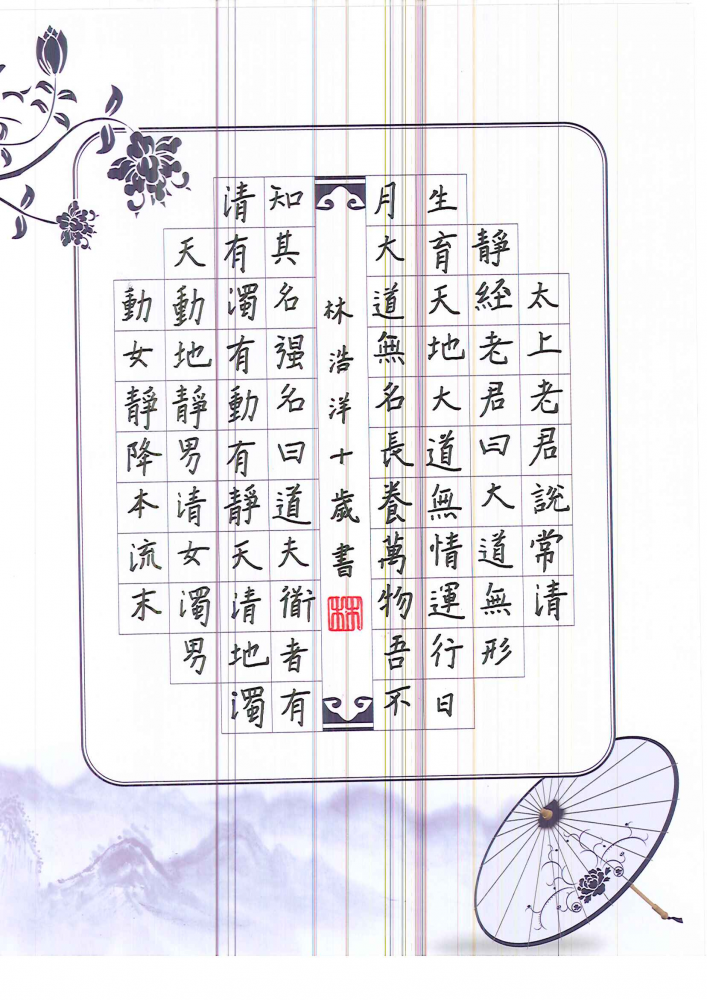 太上老君說常清
靜經老君曰大道無形
生育天地大道無情運行日
月大道無名長養萬物吾不
林浩洋十歲書
林
知其名强名曰道夫衜者有
清有濁有動有靜天清地濁
天動地靜男清女濁男
動女靜降本流末